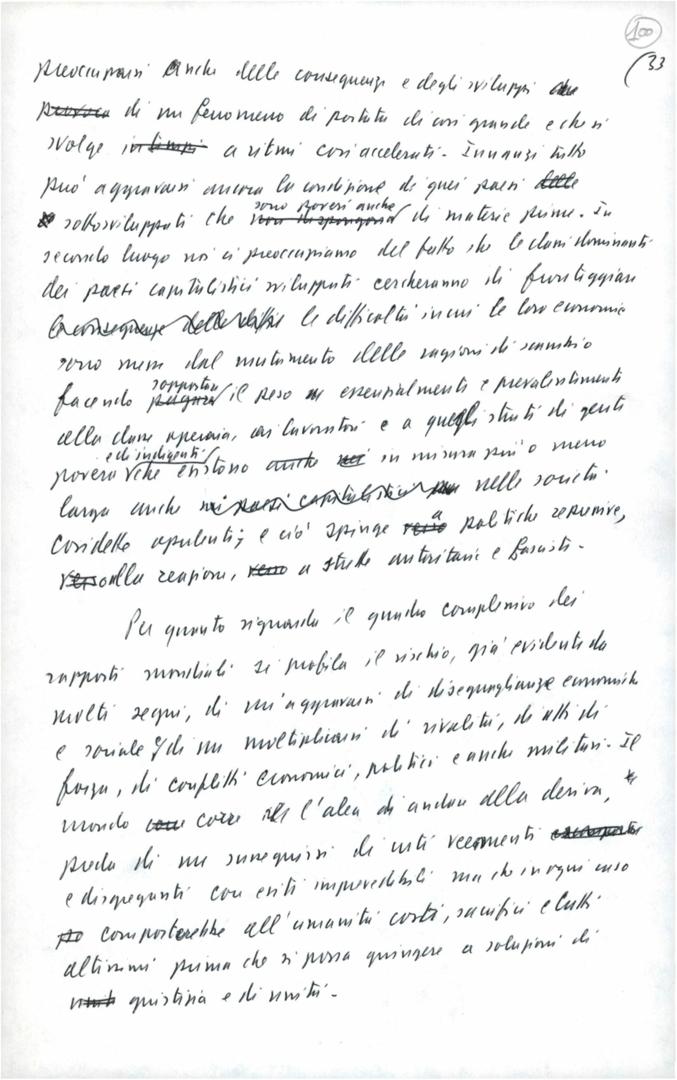 100
(33
preoccuparsi anche delle conseguenze e degli sviluppi che
provoca di un fenomeno di portata di così grande e che si
svolge in tempi a ritmi così accelerati. Innanzi tutto
può aggravarsi ancora la condizione di quei paesi delle
sono poveri anche
sottosviluppati che non dispongono di materie prime. In
secondo luogo noi ci preoccupiamo del fatto che le classi dominanti
dei paesi capitalistici sviluppati cercheranno di fronteggiare
le conseguenze delle diffic le difficoltà in cui le loro economie
sono messe dal mutamento delle ragioni di scambio
sopportare
facendo pagare il peso essenzialmente e prevalentemente
alla classe operaia, ai lavoratori e a quegli strati di gente
e di indigenti
povera che esistono anche nei in misura più o meno
larga anche nei paesi capitalistici nelle società
a
cosidette opulenti; e ciò spinge verso politiche repressive,
verso alla reazione, verso a strette autoritarie e fasciste.
Per quanto riguarda il quadro complessivo dei
rapporti mondiali si profila il rischio, già evidente da
molti segni, di un'aggravarsi di diseguaglianze economiche
e sociale e di un moltiplicarsi di rivalità, di atti di
forza, di conflitti economici, politici e anche militari. Il
mondo corre l'alea di andare alla deriva,
preda di un susseguirsi di urti veementi
e disgreganti con esiti imprevedibili ma che in ogni caso
comporterebbe all'umanità costi, sacrifici e lutti
altissimi prima che si possa giungere a soluzioni di
giustizia e di unità.